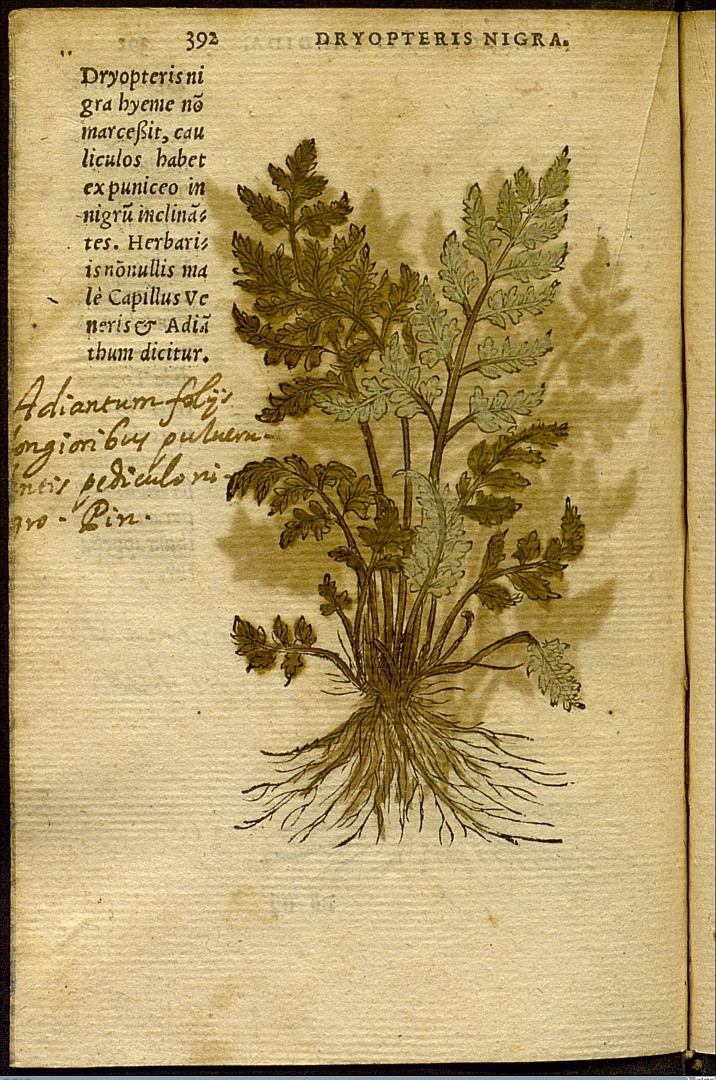 392 DRYOPTERIS NIGRA.
Dryopteris ni
gra hyeme nõ
marceßit, cau
liculos habet
ex puniceo in
nigrũ inclinã⸗
tes. Herbari⸗
is nõnullis ma
lè Capillus Ve
neris & Adiã
thum dicitur.
Adiantum folijs
longioribus puluеru-
lentis pediculo ni-
gro. Pin.